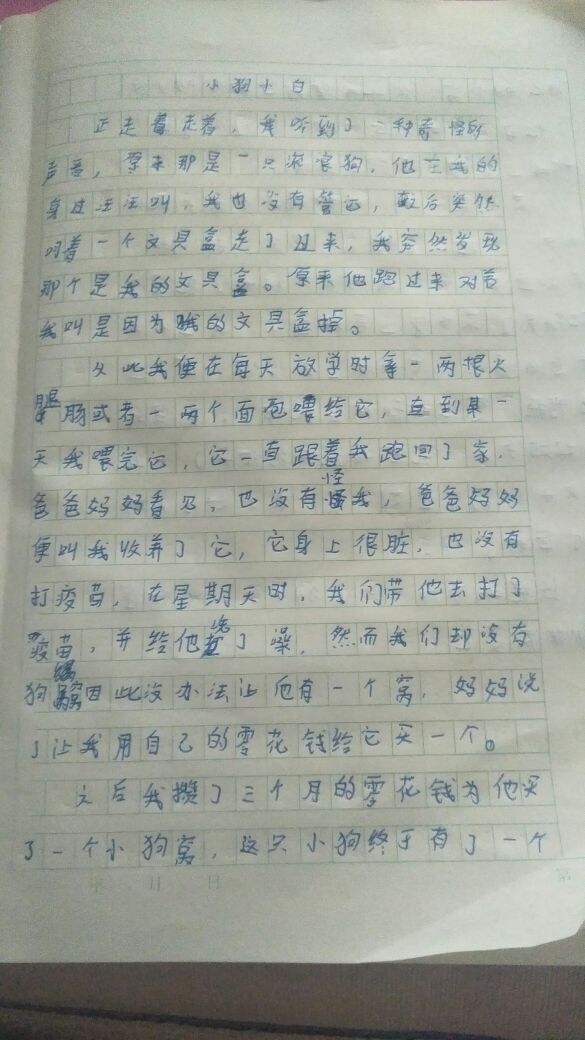 小狗小白
正走着走着，我听到了一种奇怪的
声音，原来那是一只流浪狗，他在我的
身边汪汪叫，我也没有管它，最后突然
叼着一个文具盒走了过来，我突然发现
那个是我的文具盒。原来他跑过来对着
我叫是因为我的文具盒掉。
从此我便在每天放学时拿一两根火
腿肠或者一两个面包喂给它，直到某一
天我喂完它，它一直跟着我跑回了家，
爸爸妈妈看见，也没有怪我，爸爸妈妈
便叫我收养了它，它身上很脏，也没有
打疫苗，在星期天时，我们带他去打了
疫苗，并给他洗了澡，然而我们却没有
狗窝因此没办法让他有一个窝，妈妈说
了让我用自己的零花钱给它买一个。
之后我攒了三个月的零花钱为他买
了一个小狗窝，这只小狗终于有了一个
年 月 日 第